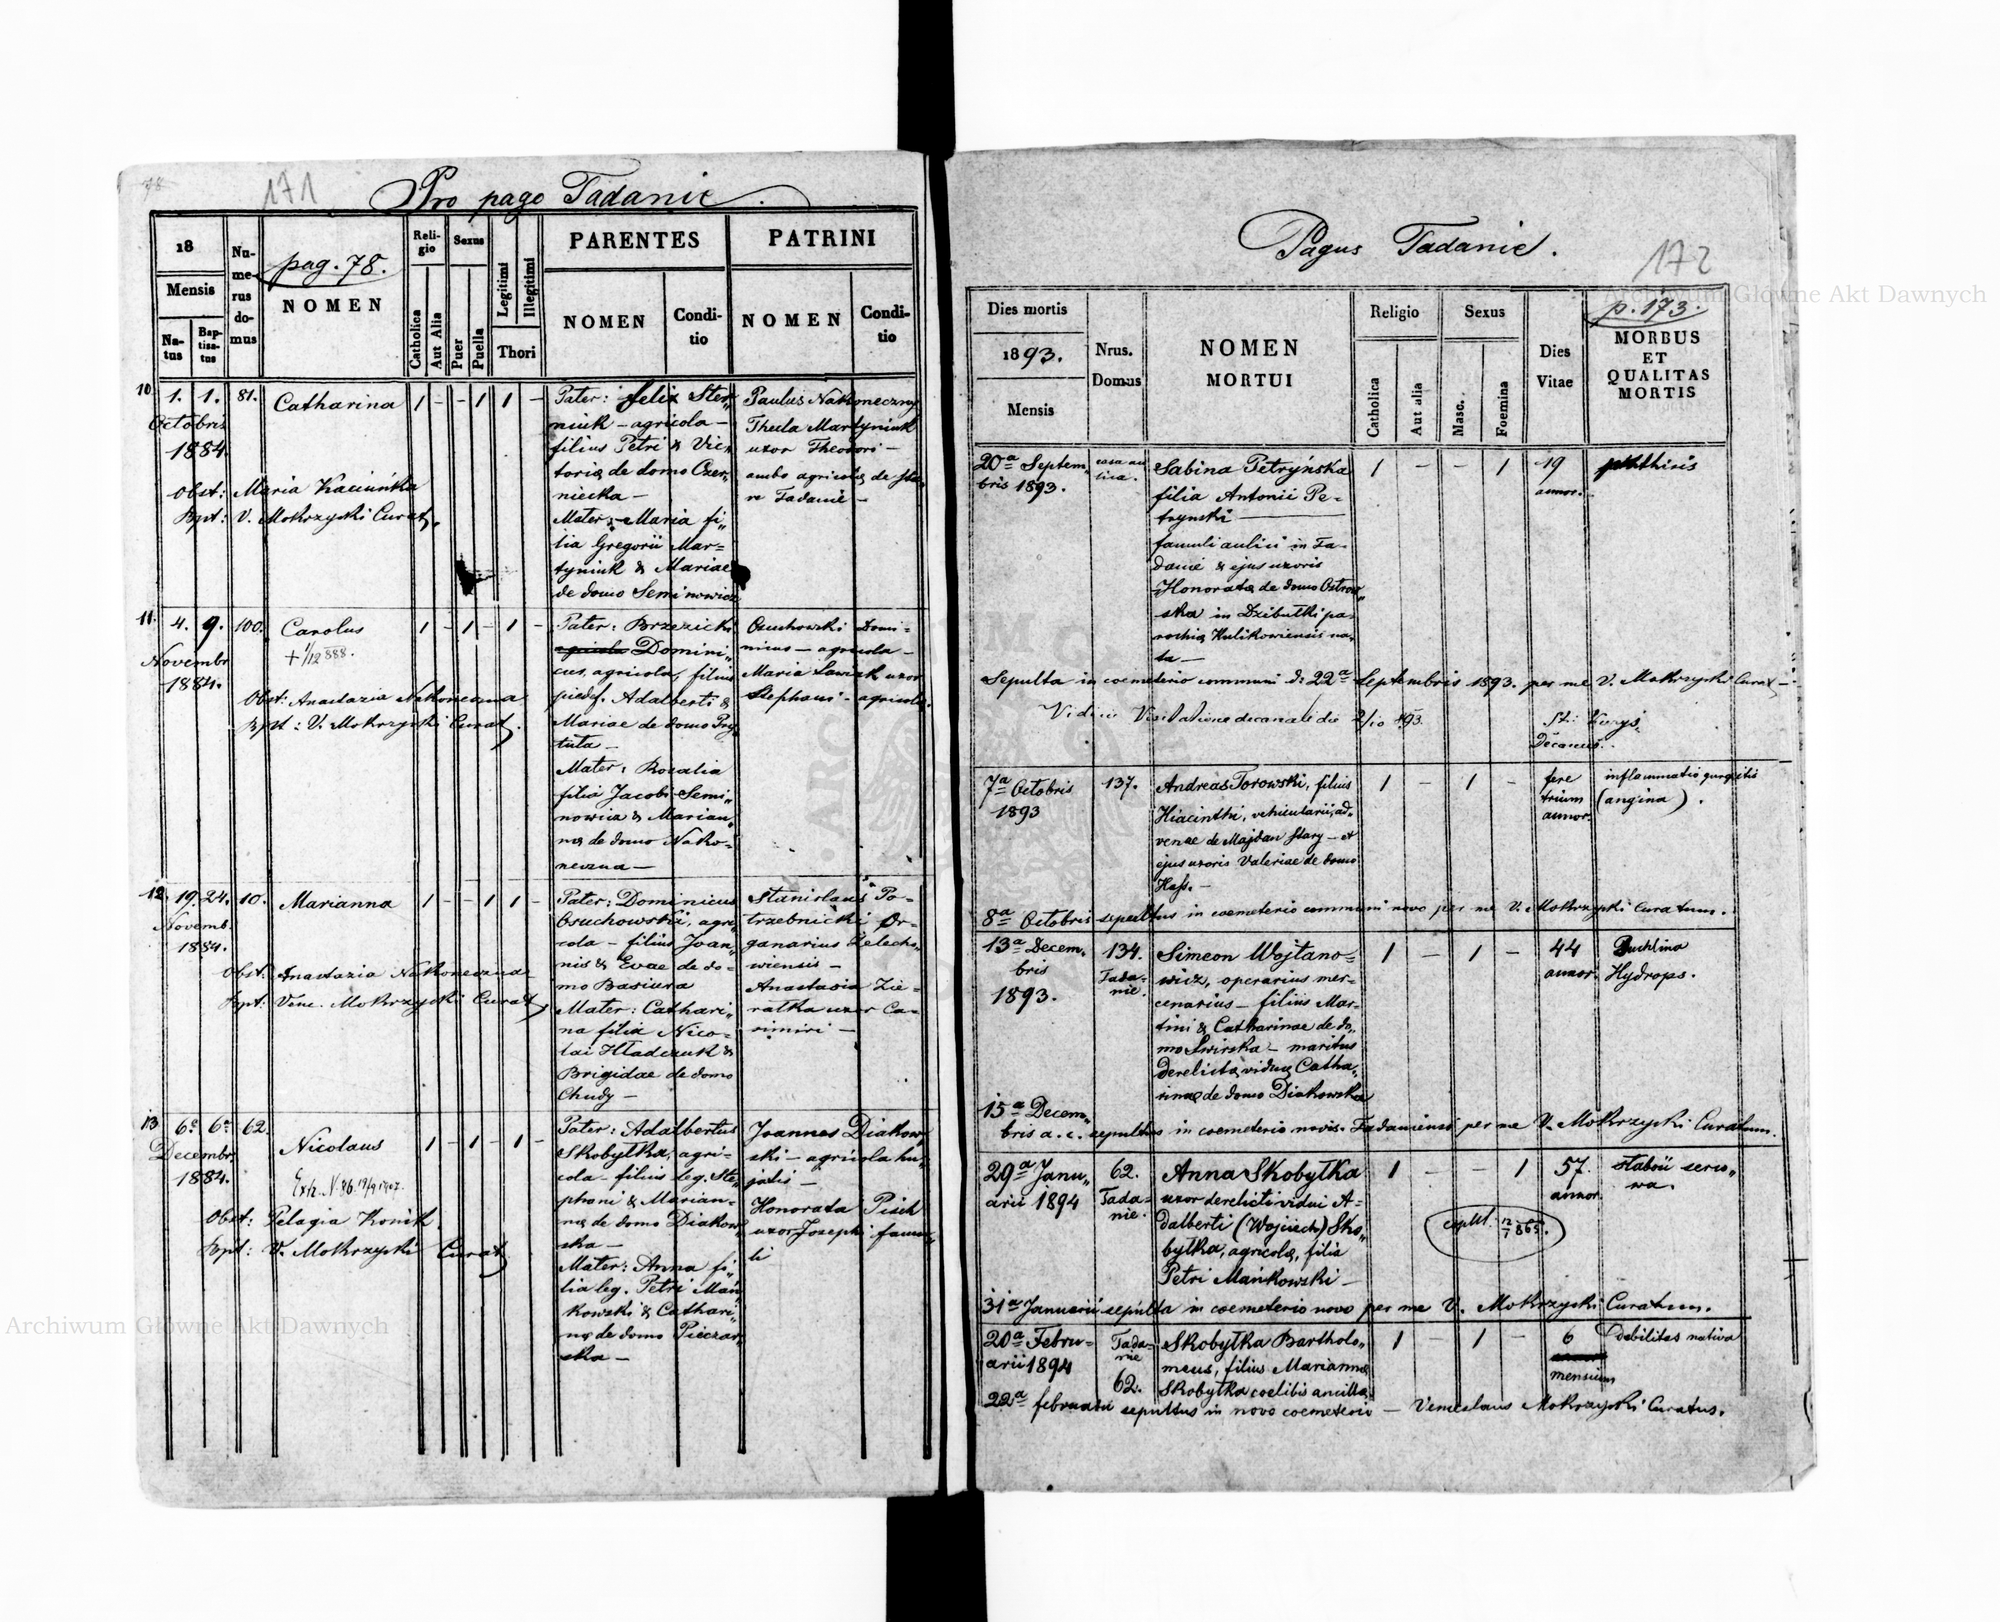 78
171
Pro pago Tadanie.
18
Mensis
Na-
tus
Bap-
tisa-
tus
Nu-
me-
rus
do-
mus
pag. 78.
NOMEN
Reli-
gio
Catholica
Aut Alia
Sexus
Puer
Puella
Legitimi
Illegitimi
Thori
PARENTES
NOMEN
Condi-
tio
PATRINI
NOMEN
Condi-
tio
10 1. 1. 81. Catharina 1 - - 1 1 -
Octobris
1884.
Obst: Maria
Bpt: V. Mokrzycki Curat.
Pater: Felix Ster„
niuk - agricola -
filius Petri & Vic„
toriæ de domo Czer„
niecka -
Mater: - Maria fi„
lia Gregorii Mar=
tyniuk & Mariae
de domo Seminowicz
Paulus Nakoneczny
Thecla Martyniuk
uxor Theodori -
ambo agricolæ de
Tadanie -
11. 4. 9. 100. Carolus 1 - 1 - 1 -
+ 1/12 888.
Novembr
1884.
Obst: Anastazia Nakoneczna
Bpt: V. Mokrzycki Curat.
Pater: Brzezicki
agricola Domini„
cus, agricola, filius
Adalberti &
Mariae de domo
Mater: Rozalia
filia Jacobi Semi„
nowicz & Marian„
næ de domo Nako=
neczna -
Osuchowski Domi-
nicus - agricola -
Maria uxor
Stephani - agricolæ
12. 19. 24. 10. Marianna 1 - - 1 1 -
Novemb.
1884.
Obst: Anastazia Nakoneczna
Bpt: Venc. Mokrzycki Curat.
Pater: Dominicus
Osuchowski, agri„
cola - filius Joan„
nis & Evae de do=
mo Basiura
Mater: Cathari„
na filia Nico=
lai Hładczuk &
Brigidae de domo
Chudy -
Stanislaus Po-
trzebnicki Or-
ganarius Zelecho„
wiensis -
Anastasia Zie-
ratka uxor Ca-
simiri -
13 6a 6a 62. Nicolaus 1 - 1 - 1 -
Decembr.
1884.
Obst: Pelagia Konik.
Bpt: V. Mokrzycki Curat.
Pater: Adalbertus
Skobyłka, agri-
cola - filius leg. Ste„
phani & Marian-
næ de domo Diakow„
ska -
Mater: Anna fi„
lia leg. Petri Mań„
kowski & Cathari„
næ de domo Pieczar„
ska -
Joannes Diakow„
ski - agricola hu„
jatis -
Honorata Pisch
uxor Josephi famu„
li
Pagus Tadanie.
172
Dies mortis
1893.
Mensis
Nrus.
Domus
NOMEN
MORTUI
Religio
Catholica
Aut alia
Sexus
Masc.
Foemina
Dies
Vitae
p. 173.
MORBUS
ET
QUALITAS
MORTIS
20a Septem„
bris 1893.
casa au
lica.
Sabina Petryńska
filia Antonii Pe-
tryński
famuli aulici in Ta-
danie & ejus uxoris
Honoratæ de domo Ostrow„
ska in Dzibułki pa-
rochiæ Kulikowiensis na„
ta -
1 - - 1
19
annor.
phthisis
Sepulta in coemeterio communi d. 22a Septembris 1893. per me V. Mokrzycki Curat -
Vidi in Visitatione decanali die 2/10 893.
Decanus.
7a Octobris
1893
137.
Andreas Torowski, filius
Hiacinthi, vehicularii, ad„
venae de Majdan Stary - et
ejus uxoris Valeriae de domo
Hass. -
1 - 1 -
fere
trium
annor.
inflammatio gurgitis
(angina).
8a Octobris sepultus in coemeterio communi novo per me V. Mokrzycki Curatum.
13a Decem„
bris
1893.
134.
Tada-
nie.
Simeon Wojtano=
wicz, operarius mer-
cenarius - filius Mar-
tini & Catharinae de do„
mo Swirska - maritus
derelictæ viduæ Catha„
rinæ de domo Diakowska
1 - 1 -
44
annor.
Puchlina
Hydrops.
15a Decem„
bris a. c. sepultus in coemeterio novis. Tadaniensi per me V. Mokrzycki Curatum.
29a Janu„
arii 1894
62.
Tada-
nie.
Anna Skobyłka
uxor derelicti vidui A-
dalberti (Wojciech) Sko„
byłka, agricolæ, filia
Petri Mańkowski -
1 - - 1
57.
annor.
copul. 12/1 865.
31a Januarii sepulta in coemeterio novo per me V. Mokrzycki Curatum.
20a Febru-
arii 1894
Tada-
nie
62.
Skobyłka Bartholo„
meus, filius Mariannæ
Skobyłka coelibis ancillæ
1 1 -
6
mensium
debilitas nativa
22a februarii sepultus in novo coemeterio - Venceslaus Mokrzycki Curatus.
Archiwum Główne Akt Dawnych
Archiwum Główne Akt Dawnych